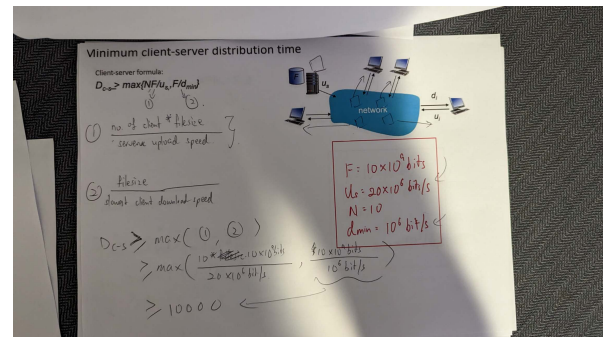 Minimum client-server distribution time
Client-server formula:
D c-s > max{NF/us, F/dmin}
① ②
F
us
network
di
ui
① no. of client * filesize
server upload speed
② filesize
client download speed
F = 10 × 10⁹ bits
us = 20×10⁶ bit/s
N = 10
dmin = 10⁶ bit/s
Dc-s ≥ max( ①, ② )
≥ max( 10 * 10×10⁹ bits / 20×10⁶ bit/s , 10×10⁹ bits / 10⁶ bit/s )
≥ 10000